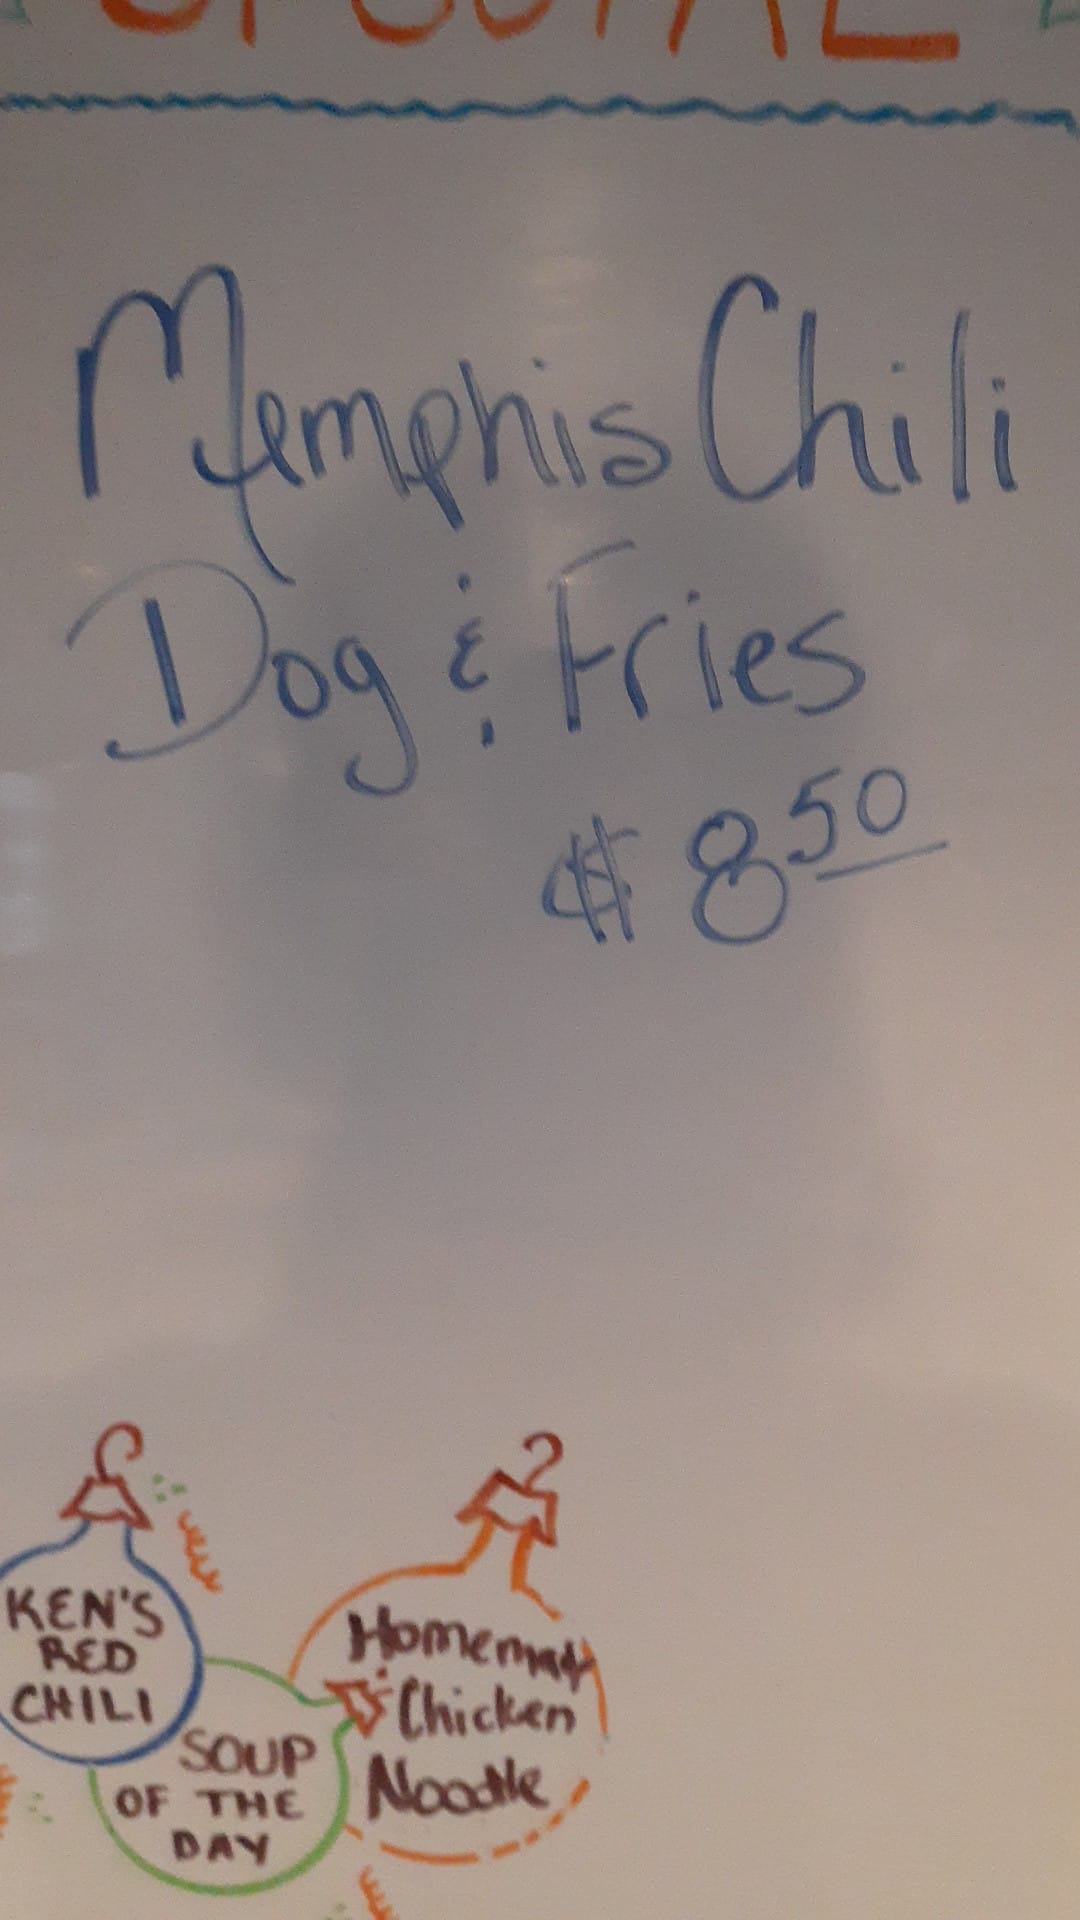 Memphis Chili
Dog & Fries
$8 50
KEN'S
RED
CHILI
SOUP
OF THE
DAY
Homemade
Chicken
Noodle